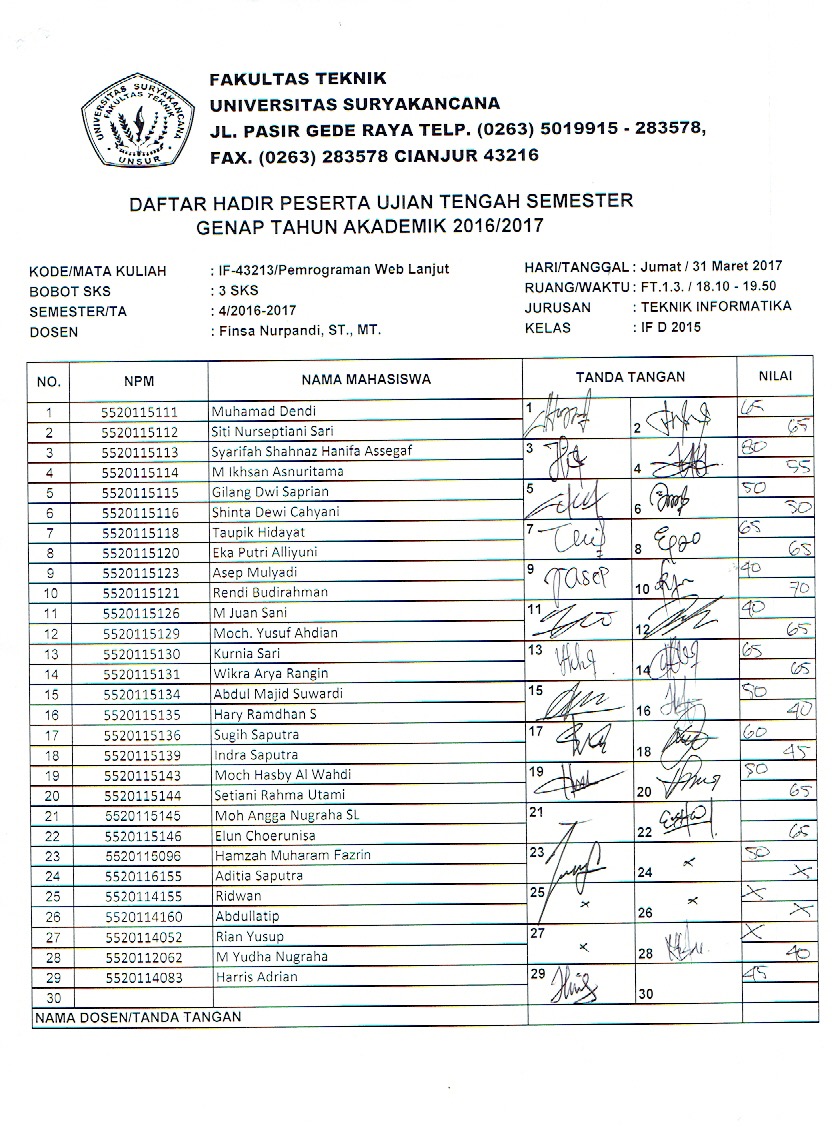 UNIVERSITAS SURYAKANCANA
FAKULTAS TEKNIK
UNSUR
FAKULTAS TEKNIK
UNIVERSITAS SURYAKANCANA
JL. PASIR GEDE RAYA TELP. (0263) 5019915 - 283578,
FAX. (0263) 283578 CIANJUR 43216
DAFTAR HADIR PESERTA UJIAN TENGAH SEMESTER
GENAP TAHUN AKADEMIK 2016/2017
KODE/MATA KULIAH : IF-43213/Pemrograman Web Lanjut HARI/TANGGAL : Jumat / 31 Maret 2017
BOBOT SKS : 3 SKS RUANG/WAKTU : FT.1.3. / 18.10 - 19.50
SEMESTER/TA : 4/2016-2017 JURUSAN : TEKNIK INFORMATIKA
DOSEN : Finsa Nurpandi, ST., MT. KELAS : IF D 2015
NO. NPM NAMA MAHASISWA TANDA TANGAN NILAI
1 5520115111 Muhamad Dendi 1 65
2 5520115112 Siti Nurseptiani Sari 2 65
3 5520115113 Syarifah Shahnaz Hanifa Assegaf 3 80
4 5520115114 M Ikhsan Asnuritama 4 55
5 5520115115 Gilang Dwi Saprian 5 50
6 5520115116 Shinta Dewi Cahyani 6
7 5520115118 Taupik Hidayat 7 65
8 5520115120 Eka Putri Alliyuni 8 65
9 5520115123 Asep Mulyadi 9 40
10 5520115121 Rendi Budirahman 10 70
11 5520115126 M Juan Sani 11 40
12 5520115129 Moch. Yusuf Ahdian 12 65
13 5520115130 Kurnia Sari 13 65
14 5520115131 Wikra Arya Rangin 14 65
15 5520115134 Abdul Majid Suwardi 15 50
16 5520115135 Hary Ramdhan S 16 40
17 5520115136 Sugih Saputra 17 60
18 5520115139 Indra Saputra 18 45
19 5520115143 Moch Hasby Al Wahdi 19
20 5520115144 Setiani Rahma Utami 20 65
21 5520115145 Moh Angga Nugraha SL 21
22 5520115146 Elun Choerunisa 22 65
23 5520115096 Hamzah Muharam Fazrin 23 50
24 5520116155 Aditia Saputra 24 x x
25 5520114155 Ridwan 25 x x
26 5520114160 Abdullatip 26 x x
27 5520114052 Rian Yusup 27 x x
28 5520112062 M Yudha Nugraha 28 40
29 5520114083 Harris Adrian 29 45
30 30
NAMA DOSEN/TANDA TANGAN